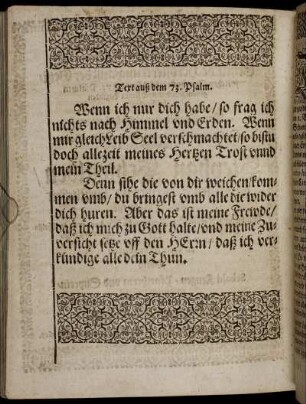 Text auß dem 73. Psalm.
Wenn ich nur dich habe/ so frag ich
nichts nach Himmel vnd Erden. Wenn
mir gleich Leib Seel verschmachtet/ so bistu
doch allezeit meines Hertzen Trost vnnd
mein Theil.
Denn sihe die von dir weichen/ kom-
men vmb/ du bringest vmb alle die wider
dich huren. Aber das ist meine Frewde/
daß ich mich zu Gott halte/ vnd meine Zu-
versicht setze vff den HErrn/ daß ich ver-
kündige alle dein Thun.